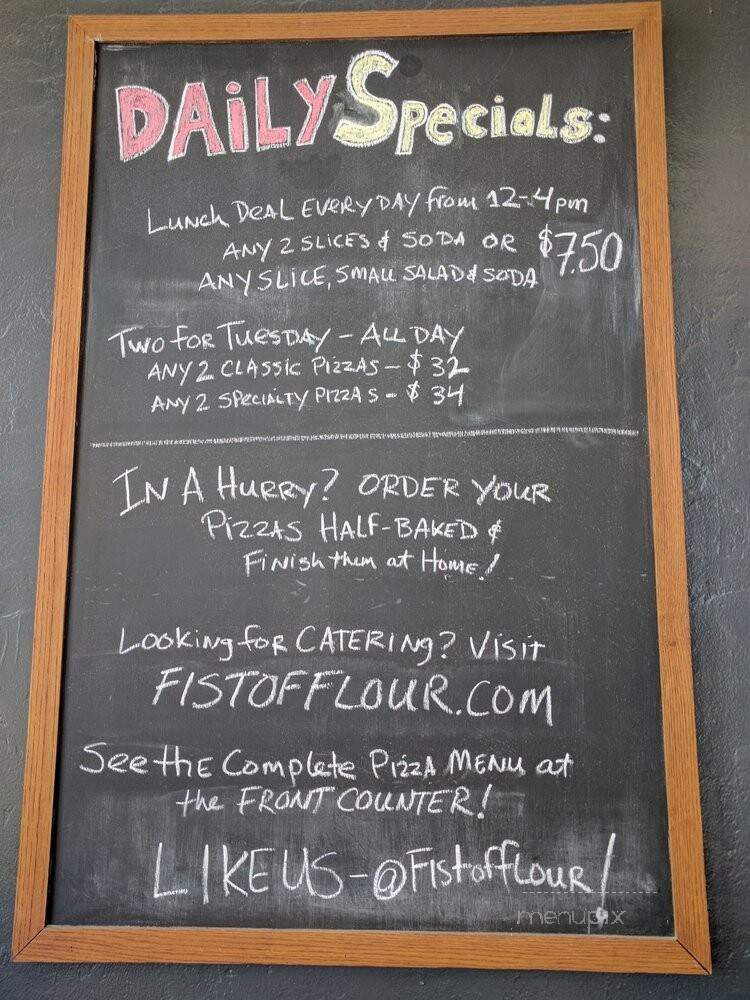 DAiLY Specials:
Lunch Deal Everyday from 12-4pm
Any 2 Slices & Soda or $7.50
Any Slice, Small Salad & Soda
Two for Tuesday - All Day
Any 2 Classic Pizzas - $32
Any 2 Specialty Pizzas - $34
In A Hurry? Order Your
Pizzas Half-Baked &
Finish them at Home!
Looking for Catering? Visit
FISTOFFLOUR.COM
See the Complete Pizza Menu at
the Front Counter!
LIKE US - @Fistofflour!
menupix